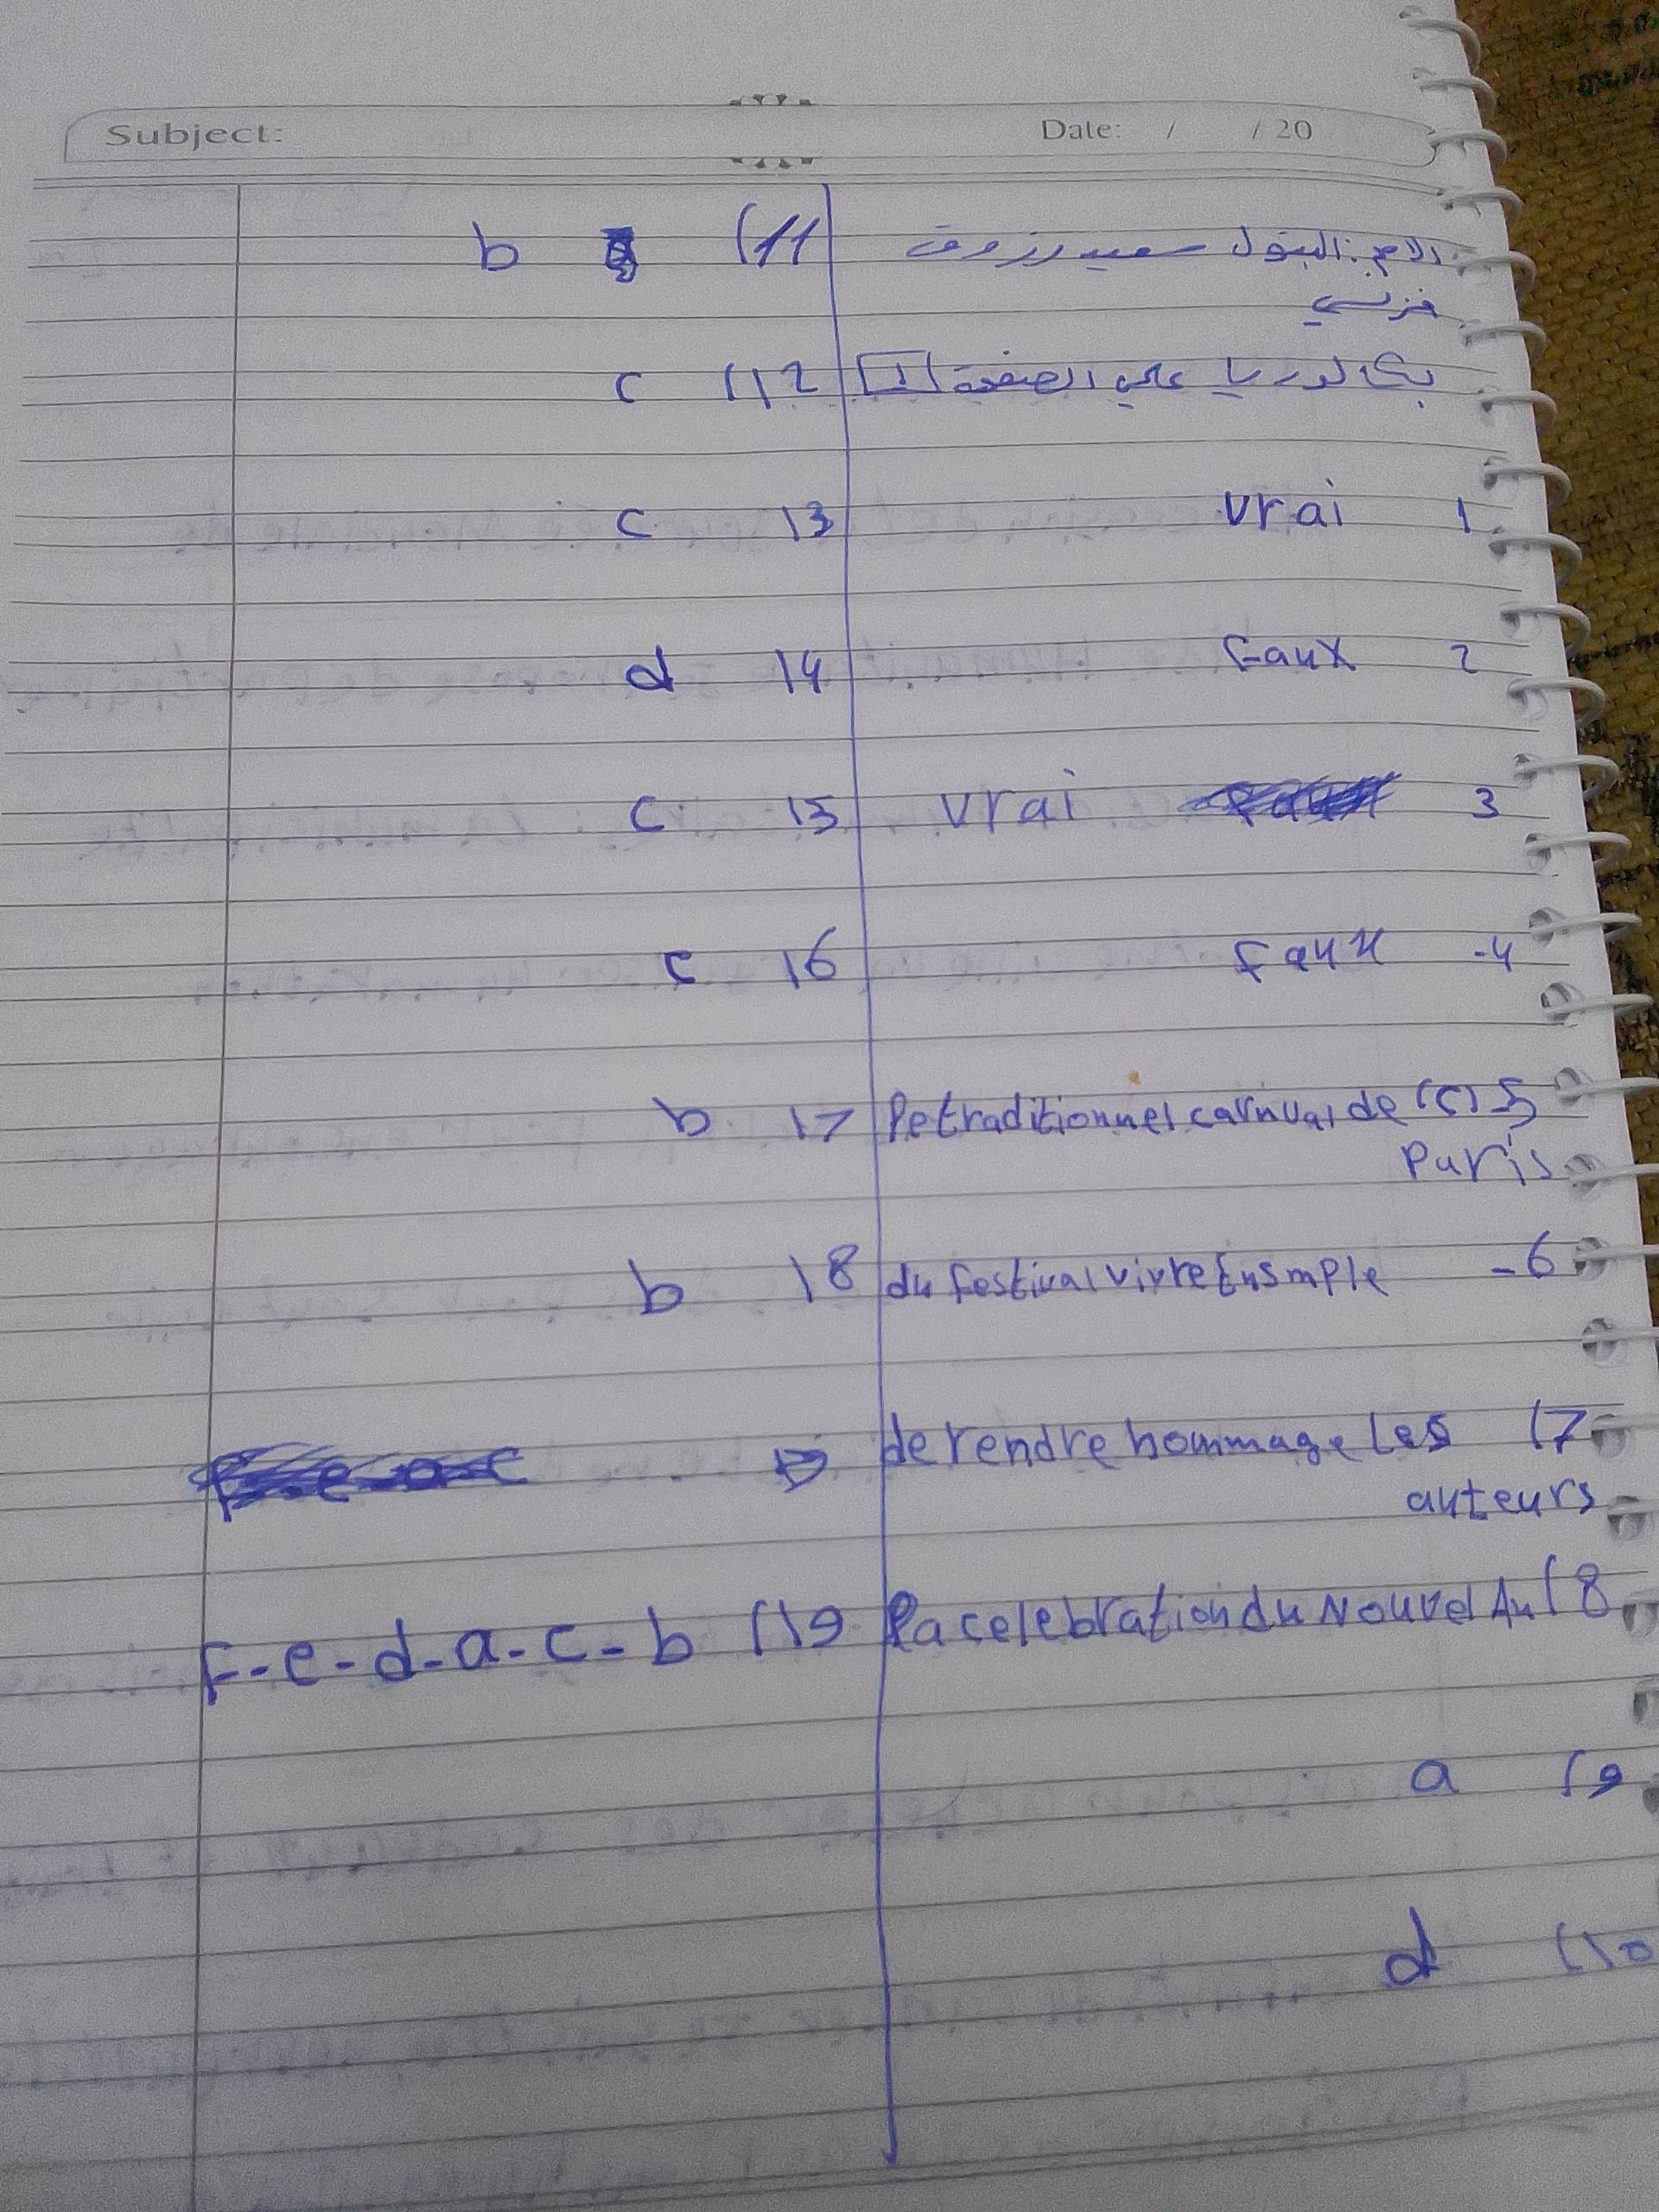 Subject:
Date: / / 20
الاسم: البتول سعيد رزوق
فرنسي
بكالوريا على الصفحة 1
1 vrai
2 Faux
3 vrai
4- Faux
5) (c) le traditionnel carnval de
Paris
6- du festival vivre Ensmple
7) de rendre hommage les
auteurs
8) la celebration du Nouvel An
9) a
10) d
11) b
12) c
13 c
14 d
15 c
16 c
17 b
18 b
19) F-e-d-a-c-b